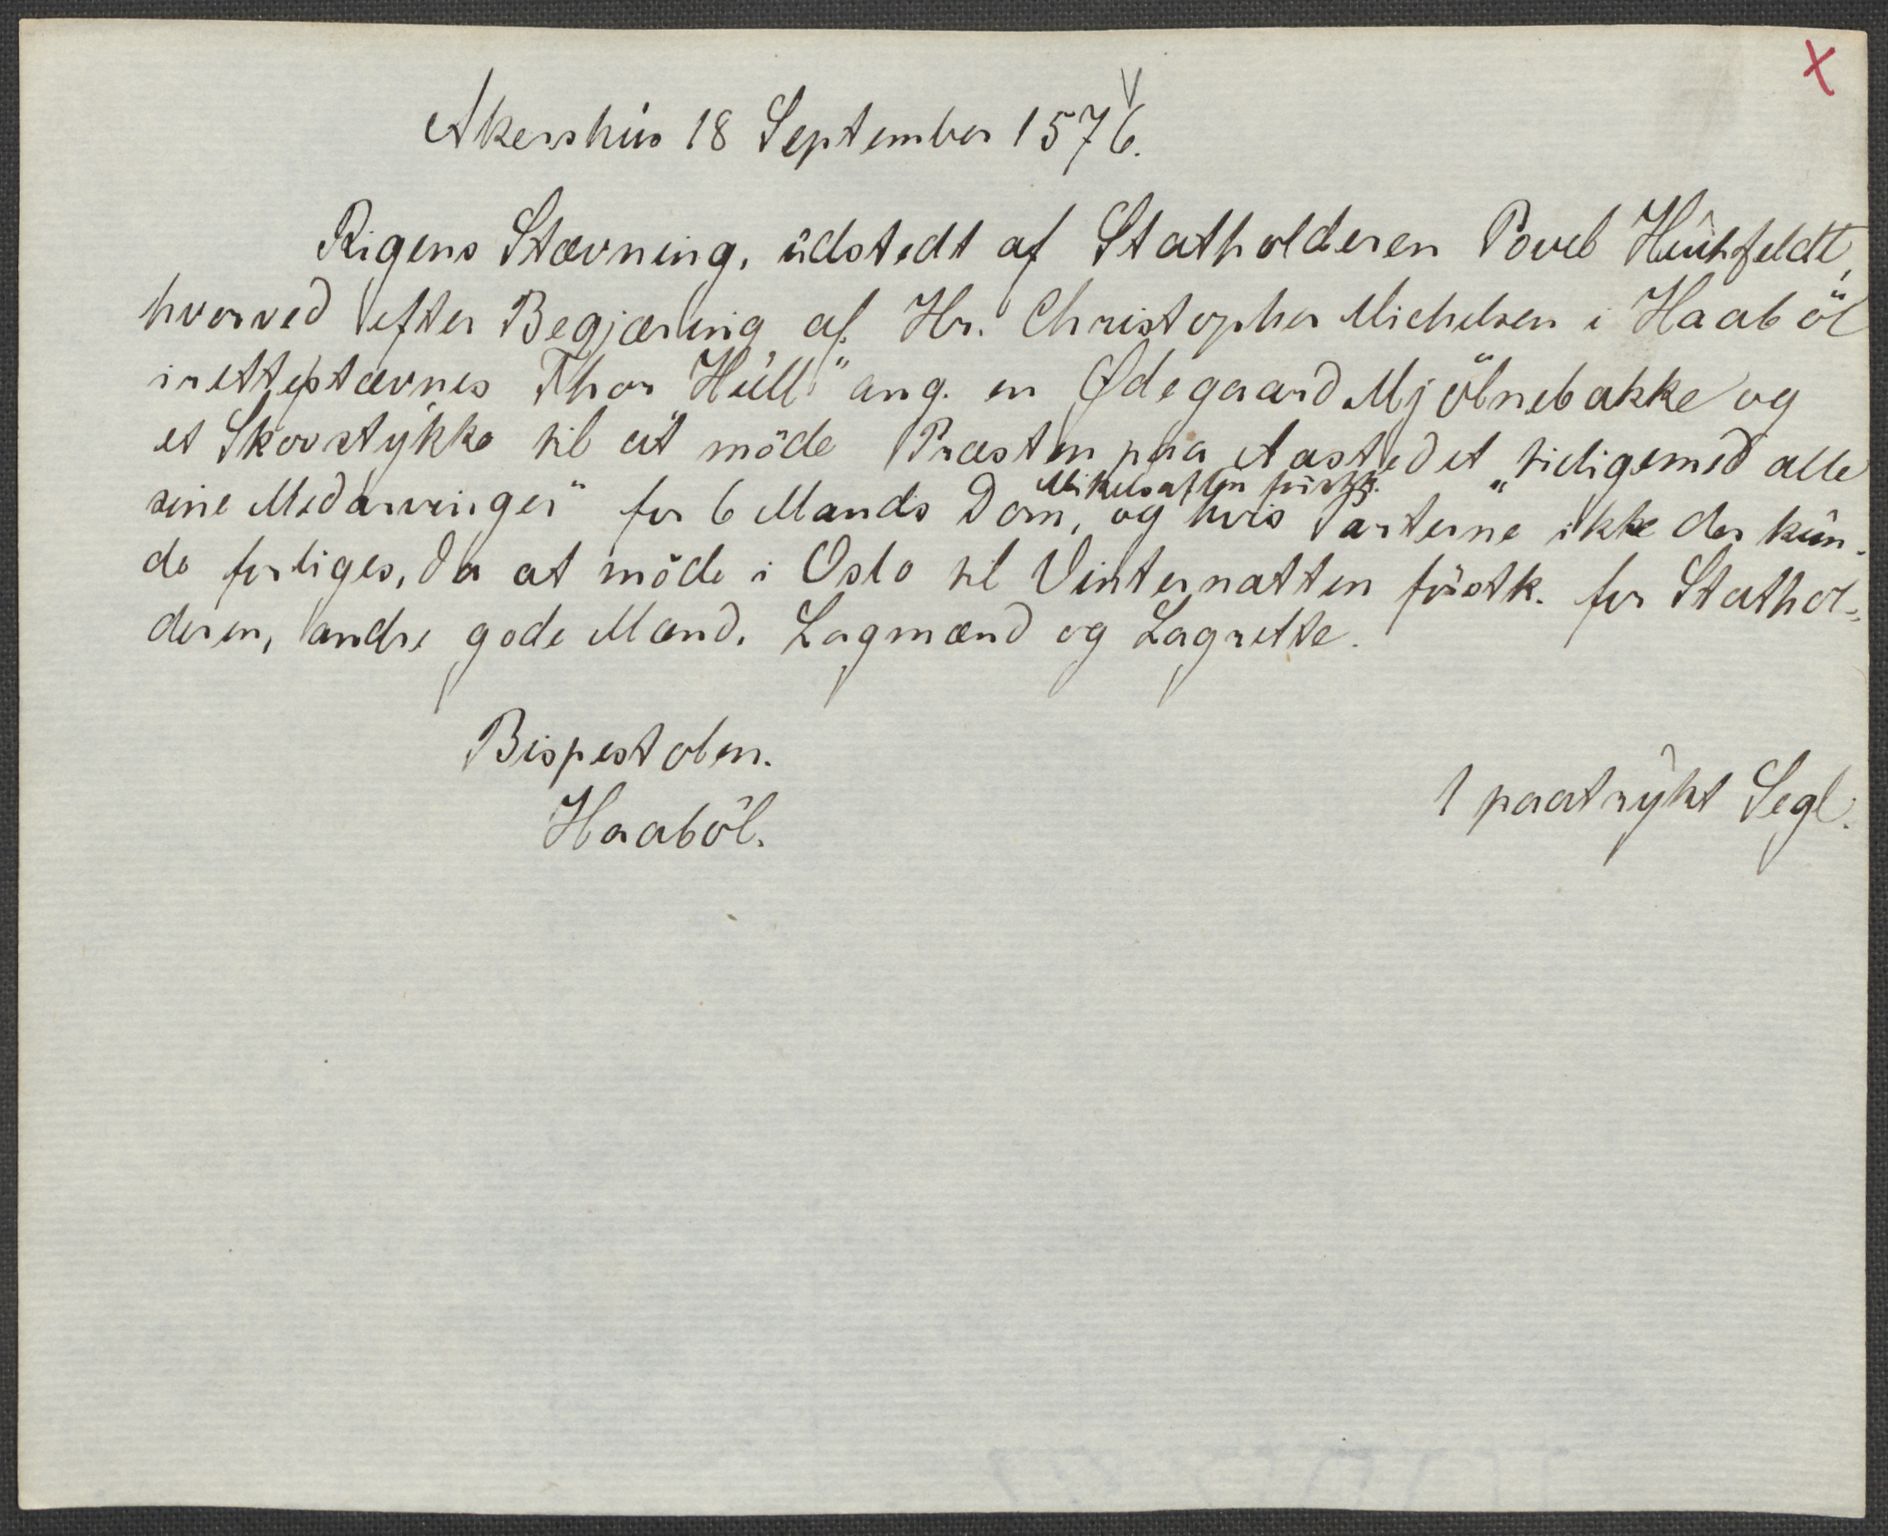 X
Akershus 18 September 1576.
Rigens Stævning, udstedt af Statholderen Povel Huitfeldt,
hvorved efter Begjæring af Hr. Christopher Michelsen i Haaböl
irettestævnes Thor Hüll" ang. en Ødegaard Mjölnebakke og
et Skovstykke til at möde Præsten paa Aastedet "tilligemed alle
Mikelsaften förstk.
sine Medarvinger" for 6 Mands Dom, og hvis Parterne ikke der kun-
de forliges, da at möde i Oslo til Vinternatten förstk. for Stathol-
deren, andre gode Mænd, Lagmænd og Lagrette.
Bispestolen.
1 paatrykt Segl.
Haaböl.